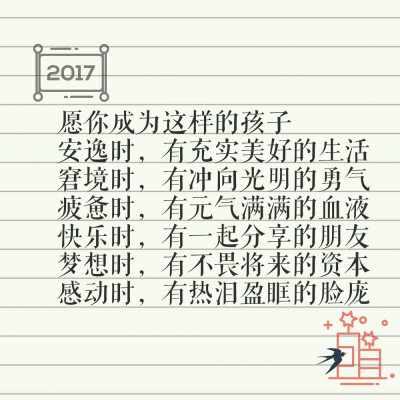 2017
愿你成为这样的孩子
安逸时，有充实美好的生活
窘境时，有冲向光明的勇气
疲惫时，有元气满满的血液
快乐时，有一起分享的朋友
梦想时，有不畏将来的资本
感动时，有热泪盈眶的脸庞